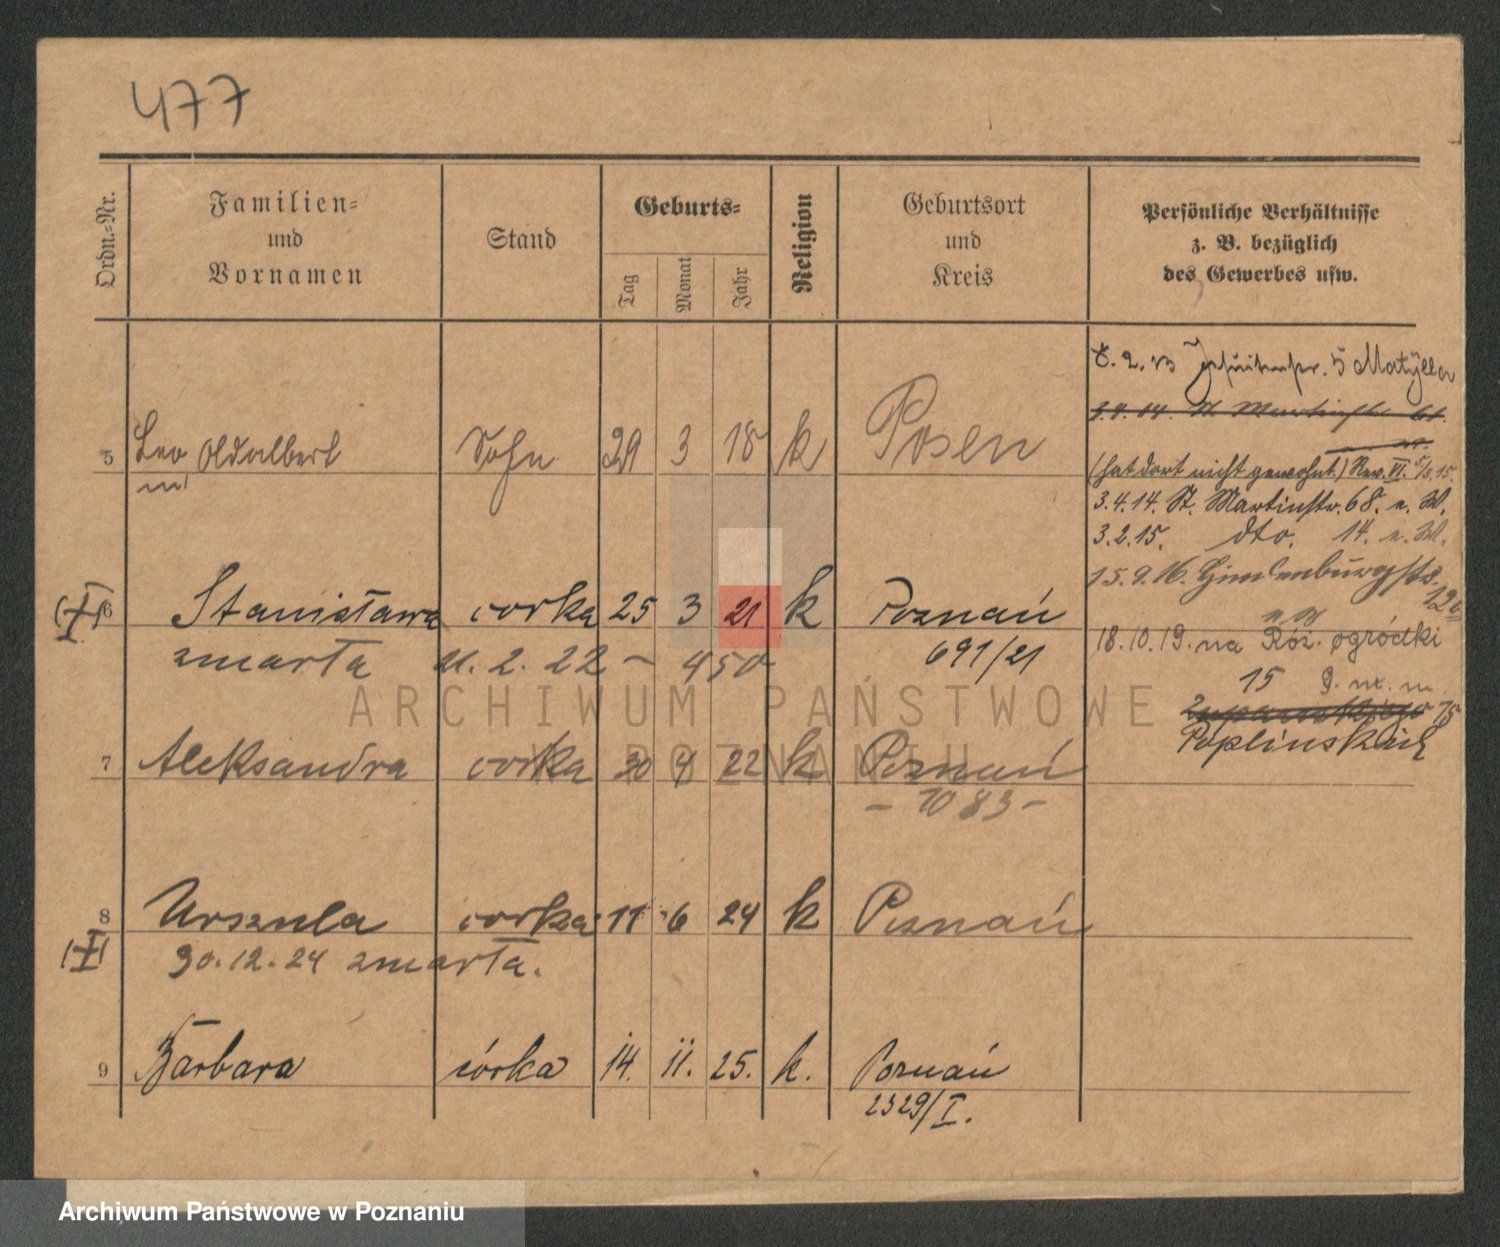 477
Ordn.=Nr.
Familien=
und
Vornamen
Stand
Geburts=
Tag
Monat
Jahr
Religion
Geburtsort
und
Kreis
Persönliche Verhältnisse
z. B. bezüglich
des Gewerbes usw.
5 Leo Sohn 29 3 18 k Posen
6 Stanisława corka 25 3 21 k Poznań
zmarła 11. 2. 22 – 450
691/21
7 Aleksandra corka 30 4 22 k Poznań
– 1083 –
8 Urszula corka 11 6 24 k Poznań
30.12.24 zmarła.
9 Barbara córka 14. 11. 25. k. Poznań
2329/I.
5 Matylla
(hat dort nicht gewohnt.) Rev. VI. 5/3.15.
3.4.14. St. Martinstr. 68. n. W.
3.2.15. dto. 14. n. W.
15.9.16.
18.10.19. na Róż. ogródki
15
75
Poplinskich
ARCHIWUM PAŃSTWOWE
W POZNANIU
Archiwum Państwowe w Poznaniu